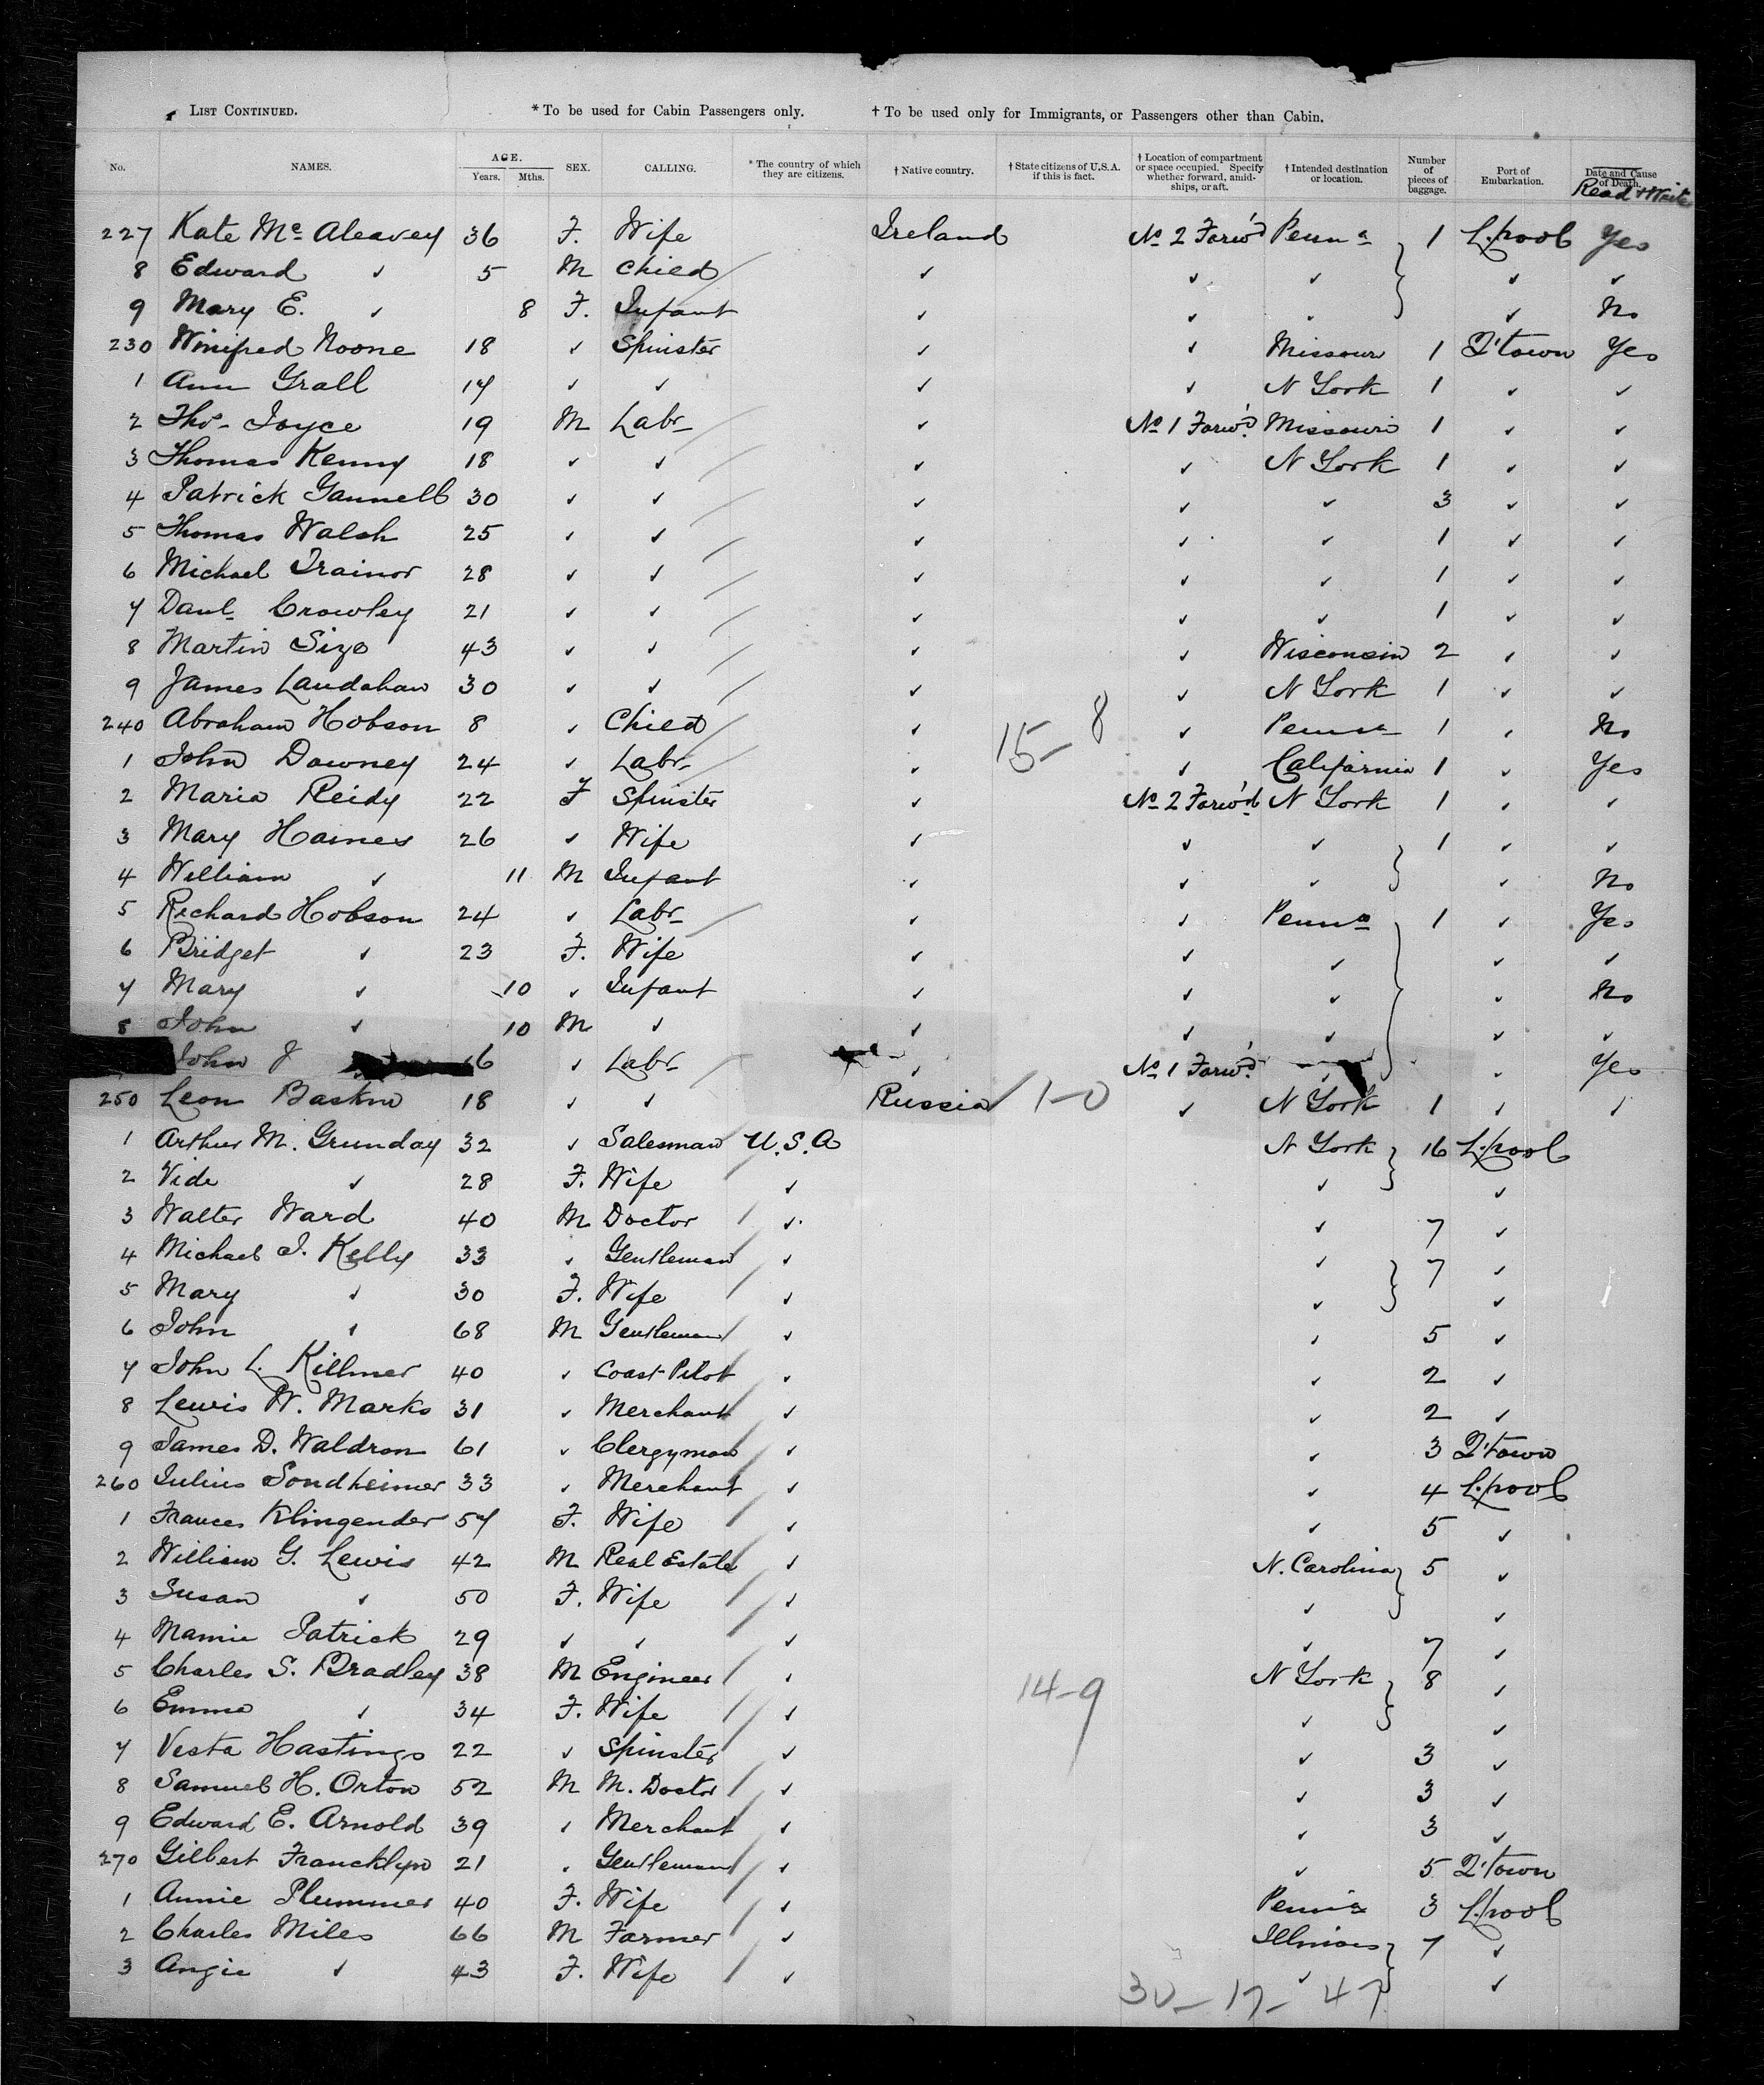 LIST CONTINUED. * To be used for Cabin Passengers only. † To be used only for Immigrants, or Passengers other than Cabin.
No. NAMES. AGE. Years. Mths. SEX. CALLING. * The country of which they are citizens. † Native country. † State citizens of U.S.A. if this is fact. † Location of compartment or space occupied. Specify whether forward, amidships, or aft. † Intended destination or location. Number of pieces of baggage. Port of Embarkation. Date and Cause of Death. Read & Write
227 Kate Mc Aleavey 36 F. Wife Ireland No 2 Forw'd Penna 1 L.pool Yes
8 Edward ✓ 5 M Child ✓ ✓ ✓ ✓ ✓
9 Mary E. ✓ 8 F. Infant ✓ ✓ ✓ ✓ No
230 Winifred Noone 18 ✓ Spinster ✓ ✓ Missouri 1 Q'town Yes
1 Ann Grall 17 ✓ ✓ ✓ ✓ N York 1 ✓ ✓
2 Thos Joyce 19 M Labr ✓ No 1 Forw'd Missouri 1 ✓ ✓
3 Thomas Kenny 18 ✓ ✓ ✓ ✓ N York 1 ✓ ✓
4 Patrick Gannell 30 ✓ ✓ ✓ ✓ ✓ 3 ✓ ✓
5 Thomas Walsh 25 ✓ ✓ ✓ ✓ ✓ 1 ✓ ✓
6 Michael Trainor 28 ✓ ✓ ✓ ✓ ✓ 1 ✓ ✓
7 Danl Crowley 21 ✓ ✓ ✓ ✓ ✓ 1 ✓ ✓
8 Martin Size 43 ✓ ✓ ✓ ✓ Wisconsin 2 ✓ ✓
9 James Laudahan 30 ✓ ✓ ✓ ✓ N York 1 ✓ ✓
240 Abraham Hobson 8 ✓ Child ✓ 15-8 ✓ Penna 1 ✓ No
1 John Downey 24 ✓ Labr ✓ ✓ California 1 ✓ Yes
2 Maria Reidy 22 F Spinster ✓ No 2 Forw'd N York 1 ✓ ✓
3 Mary Haines 26 ✓ Wife ✓ ✓ ✓ 1 ✓ ✓
4 William ✓ 11 M Infant ✓ ✓ ✓ ✓ No
5 Richard Hobson 24 ✓ Labr ✓ ✓ Penna 1 ✓ Yes
6 Bridget ✓ 23 F. Wife ✓ ✓ ✓ ✓ ✓
7 Mary ✓ 10 ✓ Infant ✓ ✓ ✓ ✓ No
8 John ✓ 10 M ✓ ✓ ✓ ✓ ✓ ✓
John J 6 ✓ Labr ✓ No 1 Forw'd ✓ ✓ Yes
250 Leon Baskin 18 ✓ ✓ Russia 1-0 ✓ N York 1 ✓ ✓
1 Arthur M. Grunday 32 ✓ Salesman U.S.A N York 16 L.pool
2 Vide ✓ 28 F. Wife ✓ ✓ ✓
3 Walter Ward 40 M Doctor ✓ ✓ 7 ✓
4 Michael J. Kelly 33 ✓ Gentleman ✓ ✓ 7 ✓
5 Mary ✓ 30 F. Wife ✓ ✓ ✓
6 John ✓ 68 M Gentleman ✓ ✓ 5 ✓
7 John L. Killmer 40 ✓ Coast Pilot ✓ ✓ 2 ✓
8 Lewis W. Marks 31 ✓ Merchant ✓ ✓ 2 ✓
9 James D. Waldron 61 ✓ Clergyman ✓ ✓ 3 Q'town
260 Julius Sondheimer 33 ✓ Merchant ✓ ✓ 4 L.pool
1 Frances Klingender 57 F. Wife ✓ ✓ 5 ✓
2 William G. Lewis 42 M Real Estate ✓ N. Carolina 5 ✓
3 Susan ✓ 50 F. Wife ✓ ✓ ✓
4 Mamie Patrick 29 ✓ ✓ ✓ ✓ 7 ✓
5 Charles S. Bradley 38 M Engineer ✓ 14-9 N York 8 ✓
6 Emma ✓ 34 F. Wife ✓ ✓ ✓
7 Vesta Hastings 22 ✓ Spinster ✓ ✓ 3 ✓
8 Samuel H. Orton 52 M M. Doctor ✓ ✓ 3 ✓
9 Edward E. Arnold 39 ✓ Merchant ✓ ✓ 3 ✓
270 Gilbert Francklyn 21 ✓ Gentleman ✓ ✓ 5 Q'town
1 Annie Plummer 40 F. Wife ✓ Penna 3 L.pool
2 Charles Miles 66 M Farmer ✓ Illinois 7 ✓
3 Angie ✓ 43 F. Wife ✓ ✓ ✓
30-17-47